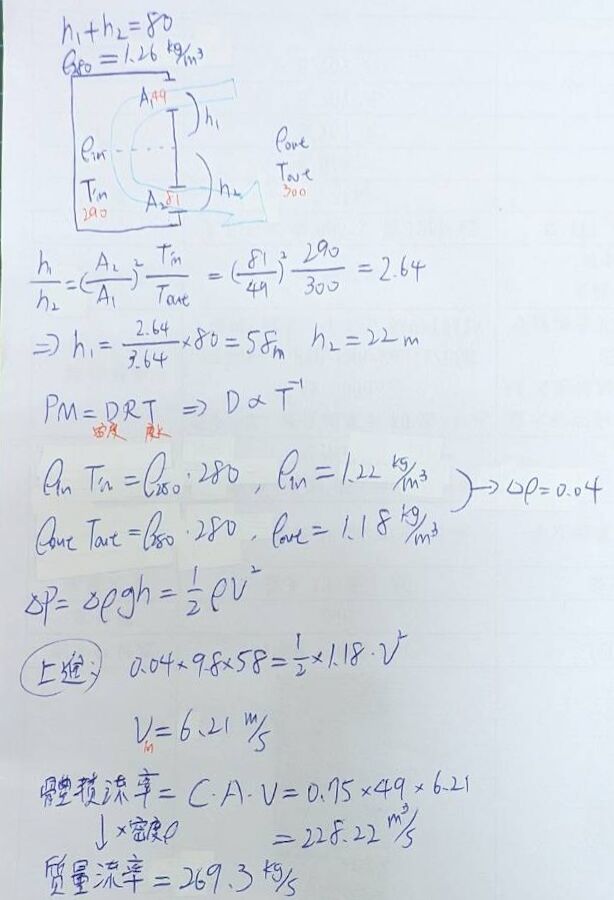 h₁+h₂=80
ρ₂₈₀=1.26 kg/m³
A₁ 49
h₁
ρin
ρout
Tin
290
Tout
300
A₂ 81
h₂
h₁/h₂=(A₂/A₁)² Tin/Tout = (81/49)² 290/300 = 2.64
⇒ h₁ = 2.64/3.64 ×80 = 58m h₂ = 22 m
PM = DRT ⇒ D ∝ T⁻¹
密度 度K
ρin Tin = ρ₂₈₀ · 280 , ρin = 1.22 kg/m³
→ Δρ = 0.04
ρout Tout = ρ₂₈₀ · 280 , ρout = 1.18 kg/m³
ΔP = Δρgh = 1/2 ρV²
上進: 0.04×9.8×58 = 1/2 ×1.18·V²
Vin = 6.21 m/s
體積流率 = C·A·V = 0.75×49×6.21
↓×密度ρ = 228.22 m³/s
質量流率 = 269.3 kg/s